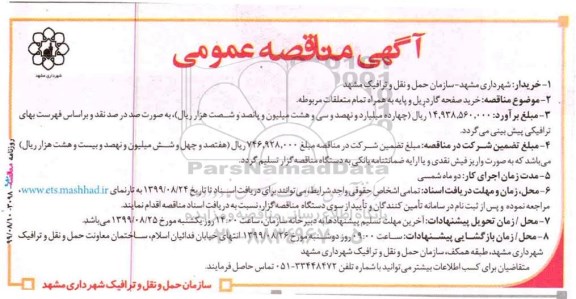 آگهی مناقصه عمومی
شهرداری مشهد
۱- خریدار: شهرداری مشهد-سازمان حمل و نقل و ترافیک مشهد
۲- موضوع مناقصه: خرید صفحه گاردریل و پایه به همراه تمام متعلقات مربوطه.
۳- مبلغ برآورد: ۱۴,۹۳۸,۵۶۰,۰۰۰ ریال (چهارده میلیارد و نهصد و سی و هشت میلیون و پانصد و شصت هزار ریال)، به صورت صد در صد نقد و براساس فهرست بهای
ترافیکی پیش بینی می گردد.
۴- مبلغ تضمین شرکت در مناقصه: مبلغ تضمین شرکت در مناقصه مبلغ ۷۴۶,۹۲۸,۰۰۰ ریال (هفتصد و چهل و شش میلیون و نهصد و بیست و هشت هزار ریال)
می باشد که به صورت واریز فیش نقدی و یا ارایه ضمانتنامه بانکی به دستگاه مناقصه گزار تسلیم گردد.
۵- مدت زمان اجرای کار: دو ماه شمسی
۶- محل، زمان و مهلت دریافت اسناد: تمامی اشخاص حقوقی واجد شرایط، می توانند برای دریافت اسناد تا تاریخ ۱۳۹۹/۰۸/۲۴ به تارنمای www.ets.mashhad.ir
مراجعه نموده و پس از ثبت نام در سامانه تأمین کنندگان و تأیید از سوی دستگاه مناقصه گزار، نسبت به دریافت اسناد مناقصه اقدام نمایند.
۷- محل / زمان تحویل پیشنهادات: آخرین مهلت تسلیم پیشنهادها به دبیرخانه سازمان تا ساعت ۱۴:۰۰ روز یکشنبه مورخ ۱۳۹۹/۰۸/۲۵ می باشد.
۸- محل / زمان بازگشایی پیشنهادات: ساعت ۹:۰۰ روز دوشنبه مورخ ۱۳۹۹/۰۸/۲۶ انتهای خیابان فدائیان اسلام، ساختمان معاونت حمل و نقل و ترافیک
شهرداری مشهد، طبقه همکف، سازمان حمل و نقل و ترافیک شهرداری مشهد
متقاضیان برای کسب اطلاعات بیشتر می توانید با شماره تلفن ۳۳۴۴۸۴۷۲-۰۵۱ تماس حاصل فرمایند.
سازمان حمل و نقل و ترافیک شهرداری مشهد
ParsNamadData
روزنامه
۹۹/۰۸/۱۰